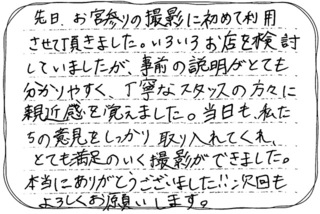 先日、お宮祭りの撮影に初めて利用
させて頂きました。いろいろお店を検討
していましたが、事前の説明がとても
分かりやすく、丁寧なスタッスの方々に
親近感を覚えました。当日も、私た
ちの意見をしっかり取り入れてくれ、
とても満足のいく撮影ができました。
本当にありがとうございました!!次回も
よろしくお願いします。